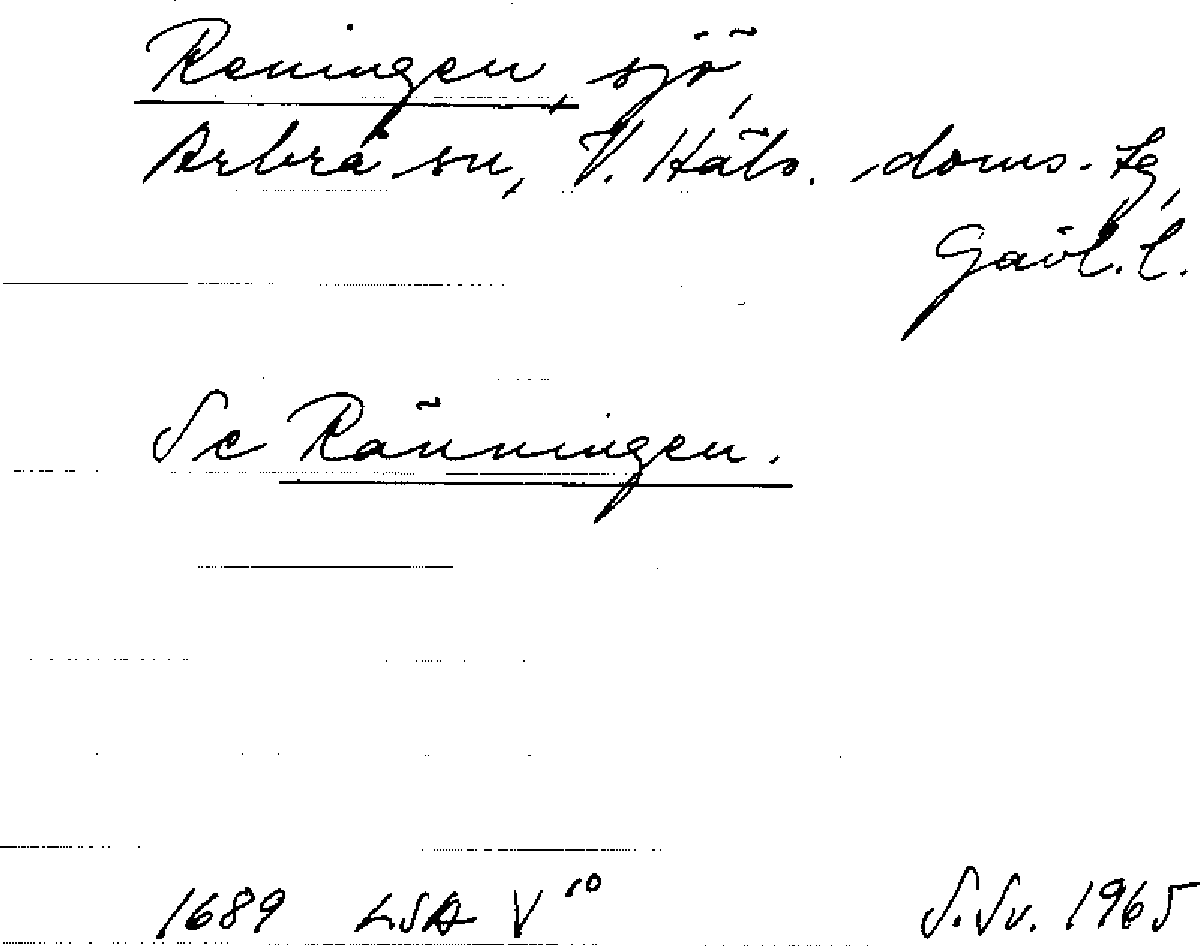 Reningen, sjö,
Arbrå sn, V. Häls. doms. tg,
Gävl. l.
Se Ränningen.
1689 LSA V 10 S.Sv. 1965